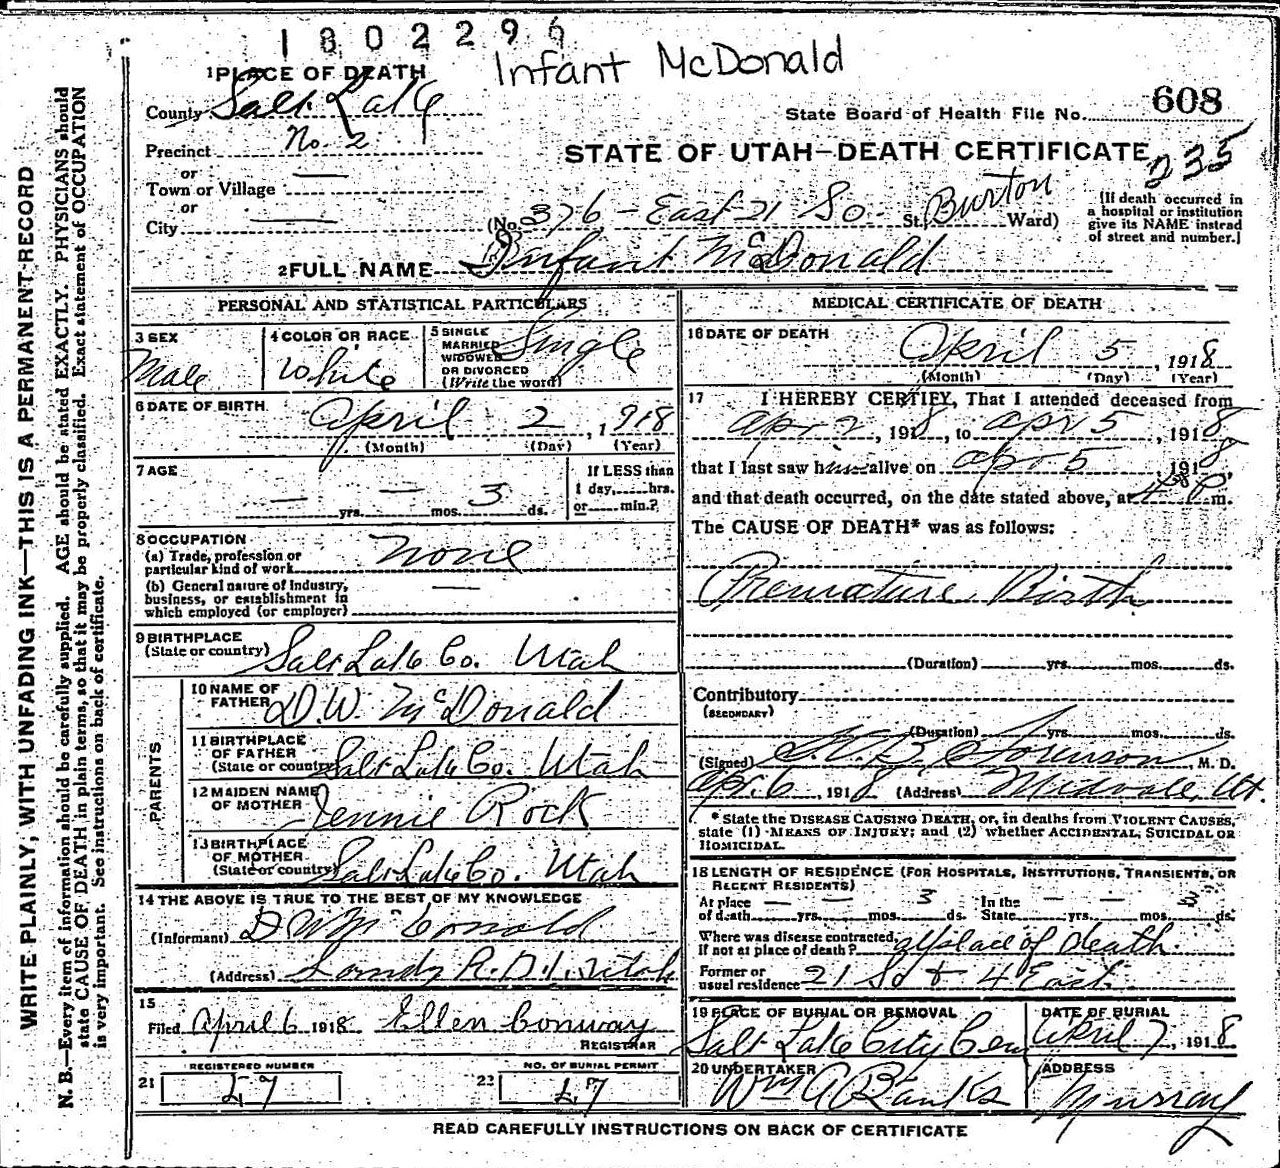 1802296
Infant McDonald
1 PLACE OF DEATH
County Salt Lake
State Board of Health File No. 608
Precinct No. 2
STATE OF UTAH—DEATH CERTIFICATE
235
or
Town or Village —
or
City —
(No. 376 - East 21 So. St. Burton Ward)
[If death occurred in
a hospital or institution
give its NAME instead
of street and number.]
2 FULL NAME Infant McDonald
PERSONAL AND STATISTICAL PARTICULARS
3 SEX
Male
4 COLOR OR RACE
White
5 SINGLE
MARRIED
WIDOWED
OR DIVORCED
(Write the word)
Single
6 DATE OF BIRTH
April 2, 1918
(Month) (Day) (Year)
7 AGE
— yrs. — mos. 3 ds.
If LESS than
1 day, hrs.
or min.?
8 OCCUPATION
(a) Trade, profession or
particular kind of work None
(b) General nature of Industry,
business, or establishment in
which employed (or employer) —
9 BIRTHPLACE
(State or country) Salt Lake Co. Utah
PARENTS
10 NAME OF
FATHER D.W. McDonald
11 BIRTHPLACE
OF FATHER
(State or country) Salt Lake Co. Utah
12 MAIDEN NAME
OF MOTHER Jennie Rock
13 BIRTHPLACE
OF MOTHER
(State or country) Salt Lake Co. Utah
14 THE ABOVE IS TRUE TO THE BEST OF MY KNOWLEDGE
(Informant) D W McDonald
(Address) Sandy R.D.1. Utah
15
Filed April 6 1918 Ellen Conway
REGISTRAR
REGISTERED NUMBER
21 47
NO. OF BURIAL PERMIT
22 47
MEDICAL CERTIFICATE OF DEATH
16 DATE OF DEATH
April 5, 1918
(Month) (Day) (Year)
17 I HEREBY CERTIFY, That I attended deceased from
Apr 2, 1918, to Apr 5, 1918
that I last saw him alive on Apr 5, 1918,
and that death occurred, on the date stated above, at m.
The CAUSE OF DEATH* was as follows:
Premature Birth
(Duration) yrs. mos. ds.
Contributory
(SECONDARY)
(Duration) yrs. mos. ds.
(Signed) Sorenson, M. D.
Apr. 6, 1918 (Address) Midvale, Ut.
* State the DISEASE CAUSING DEATH, or, in deaths from VIOLENT CAUSES,
state (1) MEANS OF INJURY; and (2) whether ACCIDENTAL, SUICIDAL OR
HOMICIDAL.
18 LENGTH OF RESIDENCE (FOR HOSPITALS, INSTITUTIONS, TRANSIENTS, OR
RECENT RESIDENTS)
At place
of death — yrs. — mos. 3 ds.
In the
State — yrs. — mos. 3 ds.
Where was disease contracted,
If not at place of death? at place of death.
Former or
usual residence 21 So & 4 East
19 PLACE OF BURIAL OR REMOVAL
Salt Lake City Cem
DATE OF BURIAL
April 7, 1918.
20 UNDERTAKER
Wm A Banks
ADDRESS
Murray
READ CAREFULLY INSTRUCTIONS ON BACK OF CERTIFICATE
WRITE PLAINLY, WITH UNFADING INK—THIS IS A PERMANENT RECORD
N. B.—Every item of information should be carefully supplied. AGE should be stated EXACTLY. PHYSICIANS should
state CAUSE OF DEATH in plain terms, so that it may be properly classified. Exact statement of OCCUPATION
is very important. See instructions on back of certificate.